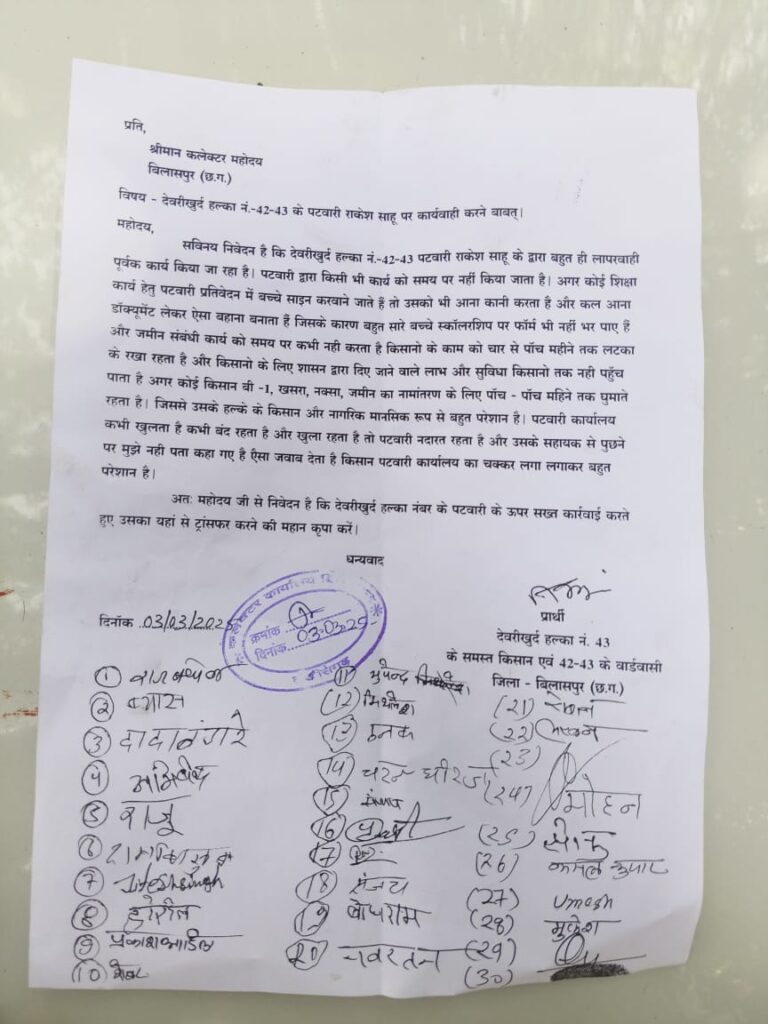 प्रति,
श्रीमान कलेक्टर महोदय
बिलासपुर (छ.ग.)
विषय - देवरीखुर्द हल्का नं.-42-43 के पटवारी राकेश साहू पर कार्यवाही करने बाबत्।
महोदय,
सविनय निवेदन है कि देवरीखुर्द हल्का नं.-42-43 पटवारी राकेश साहू के द्वारा बहुत ही लापरवाही
पूर्वक कार्य किया जा रहा है। पटवारी द्वारा किसी भी कार्य को समय पर नहीं किया जाता है। अगर कोई शिक्षा
कार्य हेतु पटवारी प्रतिवेदन में बच्चे साइन करवाने जाते हैं तो उसको भी आना कानी करता है और कल आना
डॉक्यूमेंट लेकर ऐसा बहाना बनाता हैं जिसके कारण बहुत सारे बच्चे स्कॉलरशिप पर फॉर्म भी नहीं भर पाए हैं
और जमीन संबंधी कार्य को समय पर कभी नही करता है किसानो के काम को चार से पाँच महीने तक लटका
के रखा रहता है और किसानो के लिए शासन द्वारा दिए जाने वाले लाभ और सुविधा किसानो तक नही पहुँच
पाता है अगर कोई किसान बी -1, खसरा, नक्सा, जमीन का नामांतरण के लिए पाँच - पाँच महिने तक घुमाते
रहता है। जिससे उसके हल्के के किसान और नागरिक मानसिक रूप से बहुत परेशान है। पटवारी कार्यालय
कभी खुलता है कभी बंद रहता है और खुला रहता है तो पटवारी नदारत रहता है और उसके सहायक से पुछने
पर मुझे नही पता कहा गए है ऐसा जवाब देता है किसान पटवारी कार्यालय का चक्कर लगा लगाकर बहुत
परेशान है।
अतः महोदय जी से निवेदन है कि देवरीखुर्द हल्का नंबर के पटवारी के ऊपर सख्त कार्रवाई करते
हुए उसका यहां से ट्रांसफर करने की महान कृपा करें।
धन्यवाद
दिनाँक 03/03/2025
कलेक्टर कार्यालय
क्रमांक
दिनांक 03.03.25
प्रार्थी
देवरीखुर्द हल्का नं. 43
के समस्त किसान एवं 42-43 के वार्डवासी
जिला - बिलासपुर (छ.ग.)
1
2 ब्यास
3
4
5 राजू
6
7
8
9 प्रकाश
10
11
(12) मिथलेश
13
14
15
16
17
18 संजय
19
20 नवरतन
(21)
(22)
(23)
(24) मोहन
(25)
(26) कमल कुमार
(27) Umesh
(28) मुकेश
(29)
(30)